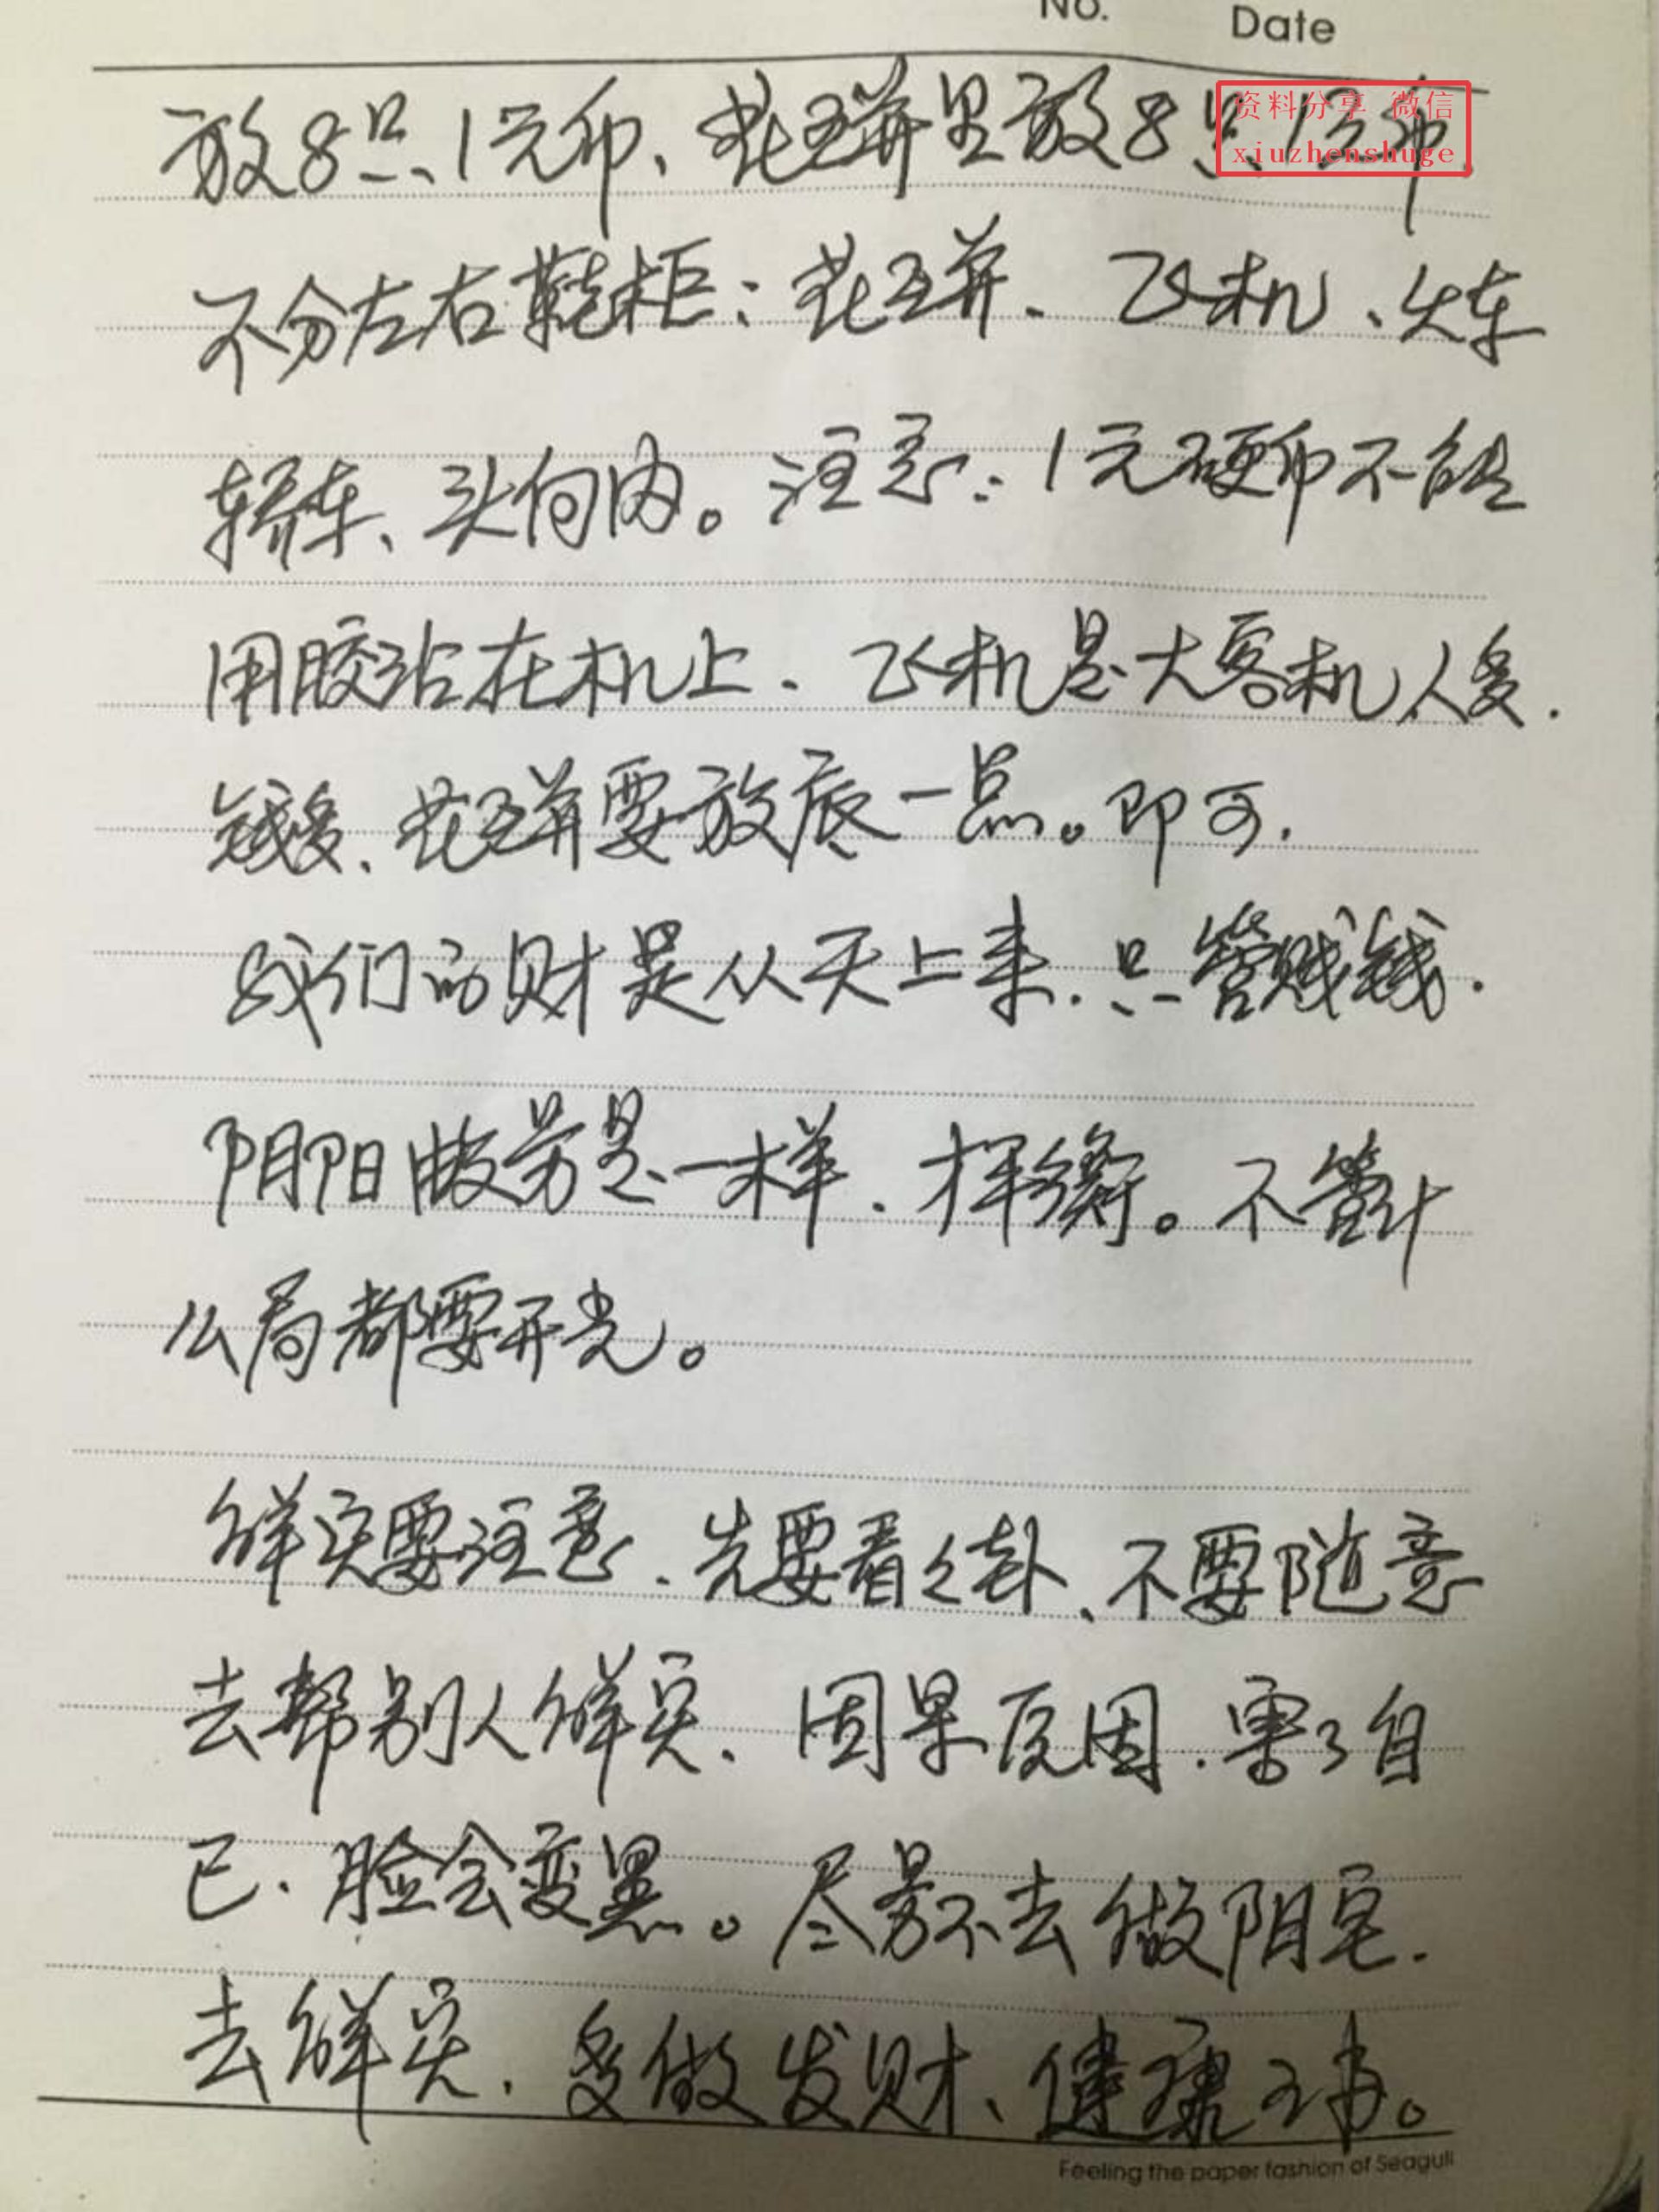 No. Date
放8只、1元币、花瓶里放8只1元币
资料分享 微信
xiuzhenshuge
不分左右鞋柜：花瓶、飞机、火车
轿车、头向内。注意：1元硬币不能
用胶沾在机上. 飞机是大客机人多.
钱多、花瓶要放底一点。即可.
我们的财是从天上来.只管赚钱.
阴阳能量是一样. 平衡。不管什
么局都要开光。
解灾要注意. 先要看之卦、不要随意
去帮别人解灾、因果反因.害了自
己. 脸会变黑。尽量不去做阴宅.
去解灾. 多做发财、健康之事。
Feeling the paper fashion of Seagull